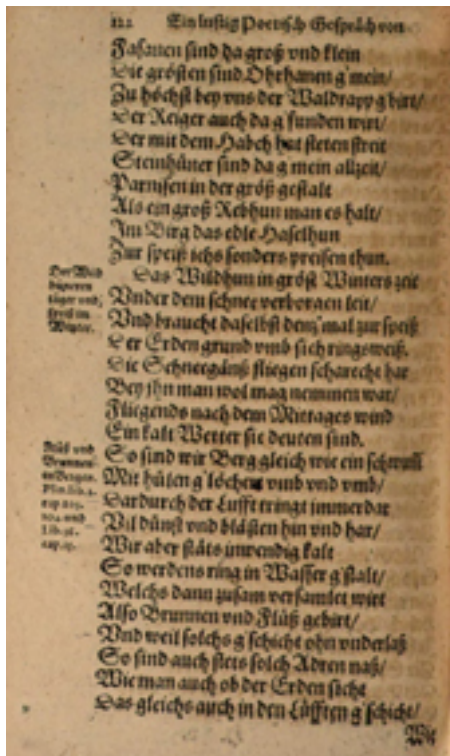 122 Ein lustig Poetisch Gespräch von
Fasanen sind da groß vnd klein
Die grösten sind Ohrhanen g'mein/
Zu höchst bey vns der Waldrapp g'birt/
Der Reiger auch da g'funden wirt/
Der mit dem Habch hat steten streit
Steinhüner sind da g'mein allzeit/
Parnisen in der größ gestalt
Als ein groß Rebhun man es halt/
Im Birg das edle Haselhun
Zur speiß ichs sonders preisen thun.
Der Wild
hüneren
läger vnd
speiß im
Winter.
Das Wildhun in gröst Winters zeit
Vnder dem schnee verborgen leit/
Vnd braucht daselbst dem mal zur speiß
Der Erden grund vmb sich ringsweiß.
Die Schneegänß fliegen scharecht har
Bey jhn man wol mag nemmen war/
Fliegends nach dem Mittages wind
Ein kalt Wetter sie deuten sind.
Flüß vnd
Brunnen
in Bergen.
Plin. lib. 2.
cap. 103.
104. vnd
Lib. 31.
So sind wir Berg gleich wie ein schwum
Mit hülen g'löchert vmb vnd vmb/
Dardurch der Lufft tringt immerdar
Vil dünst vnd blästen hin vnd har/
Wir aber stäts inwendig kalt
So werdens ring in Wasser g'stalt/
Welchs dann zusam versamlet wirt
Also Brunnen vnd Flüß gebirt/
Vnd weil solchs g'schicht ohn vnderlaß
So sind auch stets solch Adren naß/
Wie man auch ob der Erden sicht
Das gleichs auch in den Lüfften g'schicht/
Wie